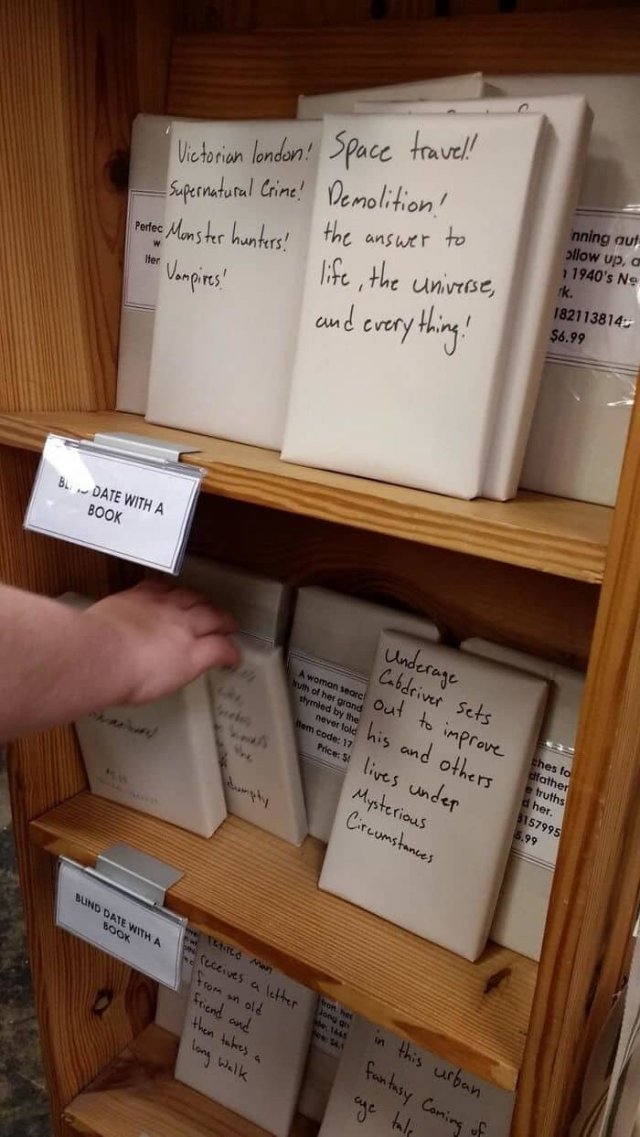 Victorian london!
Supernatural Crime!
Monster hunters!
Vampires!
Space travel!
Demolition!
the answer to
life, the universe,
and everything!
Perfec
w
Iter
nning aut
ollow up, a
1940's Ne
rk.
182113814
$6.99
DATE WITH A
BOOK
A woman searc
ruth of her grand
stymied by the
never told
Item code: 17
Price: $
Underage
Cabdriver sets
out to improve
his and others
lives under
Mysterious
Circumstances
ches fo
dfather
e truths
d her.
3157995
6.99
the
BLIND DATE WITH A
BOOK
retired man
receives a letter
from an old
friend and
then takes a
long walk
in this urban
fantasy Coming of
age tale